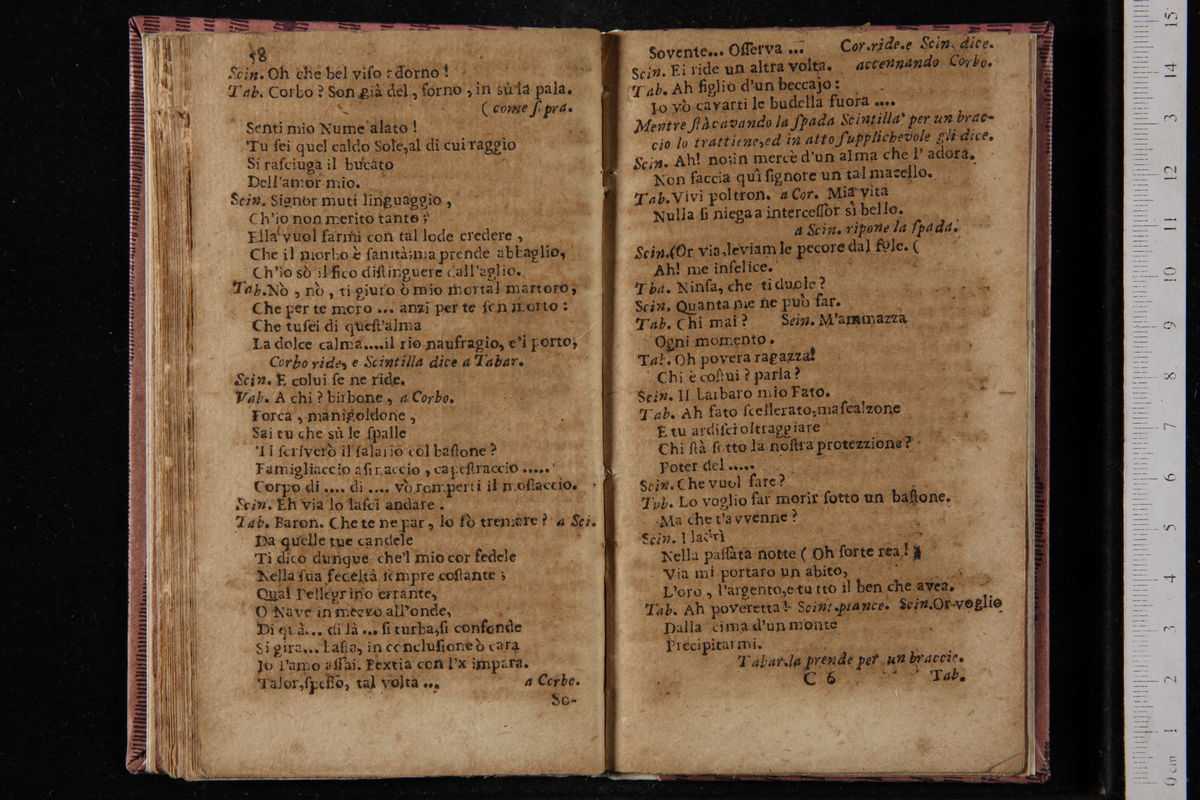 58
Scin. Oh che bel viso adorno!
Tab. Corbo? Son già del, forno, in sù la pala.
(come sopra.
Senti mio Nume alato!
Tu sei quel caldo Sole, al di cui raggio
Si rasciuga il bucato
Dell'amor mio.
Scin. Signor muti linguaggio,
Ch'io non merito tanto;
Ella vuol farmi con tal lode credere,
Che il morbo è sanità: ma prende abbaglio,
Ch'io sò il fico distinguere dall'aglio.
Tab. Nò, nò, ti giuro ò mio mortal martoro,
Che per te moro ... anzi per te son morto:
Che tu sei di quest'alma
La dolce calma....il rio naufragio, e'l porto,
Corbo ride, e Scintilla dice a Tabar.
Scin. E colui se ne ride.
Vab. A chi? birbone, a Corbo.
Forca, manigoldone,
Sai tu che sù le spalle
Ti scriverò il salario col bastone?
Famigliaccio asinaccio, capestraccio .....
Corpo di .... di .... vò romperti il mostaccio.
Scin. Eh via lo lasci andare.
Tab. Baron. Che te ne par, lo fò tremare? a Sci.
Da quelle tue candele
Ti dico dunque che'l mio cor fedele
Nella sua fedeltà sempre costante;
Qual Pellegrino errante,
O Nave in mezzo all'onde,
Di quà... di là ... si turba, si confonde
Si gira... basta, in conclusione ò cara
Io l'amo assai. Pextia con l'x impara.
Talor, spesso, tal volta ... a Corbo.
So-
Sovente... Osserva ... Cor. ride. e Scin. dice.
Scin. Ei ride un altra volta. accennando Corbo.
Tab. Ah figlio d'un beccajo:
Io vò cavarti le budella fuora ....
Mentre stà cavando la spada Scintilla per un brac-
cio lo trattiene, ed in atto supplichevole gli dice.
Scin. Ah! no: in mercè d'un alma che l'adora.
Non faccia quì signore un tal macello.
Tab. Vivi poltron. a Cor. Mia vita
Nulla si niega a intercessor sì bello.
a Scin. ripone la spada.
Scin. (Or via, leviam le pecore dal sole. (
Ah! me infelice.
Tba. Ninfa, che ti duole?
Scin. Quanta me ne può far.
Tab. Chi mai? Scin. M'ammazza
Ogni momento.
Tab. Oh povera ragazza!
Chi è costui? parla?
Scin. Il barbaro mio Fato.
Tab. Ah fato scellerato, mascalzone
E tu ardisci oltraggiare
Chi stà sotto la nostra protezzione?
Poter del .....
Scin. Che vuol fare?
Tab. Lo voglio far morir sotto un bastone.
Ma che t'avvenne?
Scin. I ladri
Nella passata notte (Oh sorte rea!)
Via mi portaro un abito,
L'oro, l'argento, e tutto il ben che avea.
Tab. Ah poveretta! Scint. piance. Scin. Or voglio
Dalla cima d'un monte
Precipitarmi.
Tabar. la prende per un braccio.
C 6 Tab.
0 cm 1 2 3 4 5 6 7 8 9 10 11 12 3 14 15